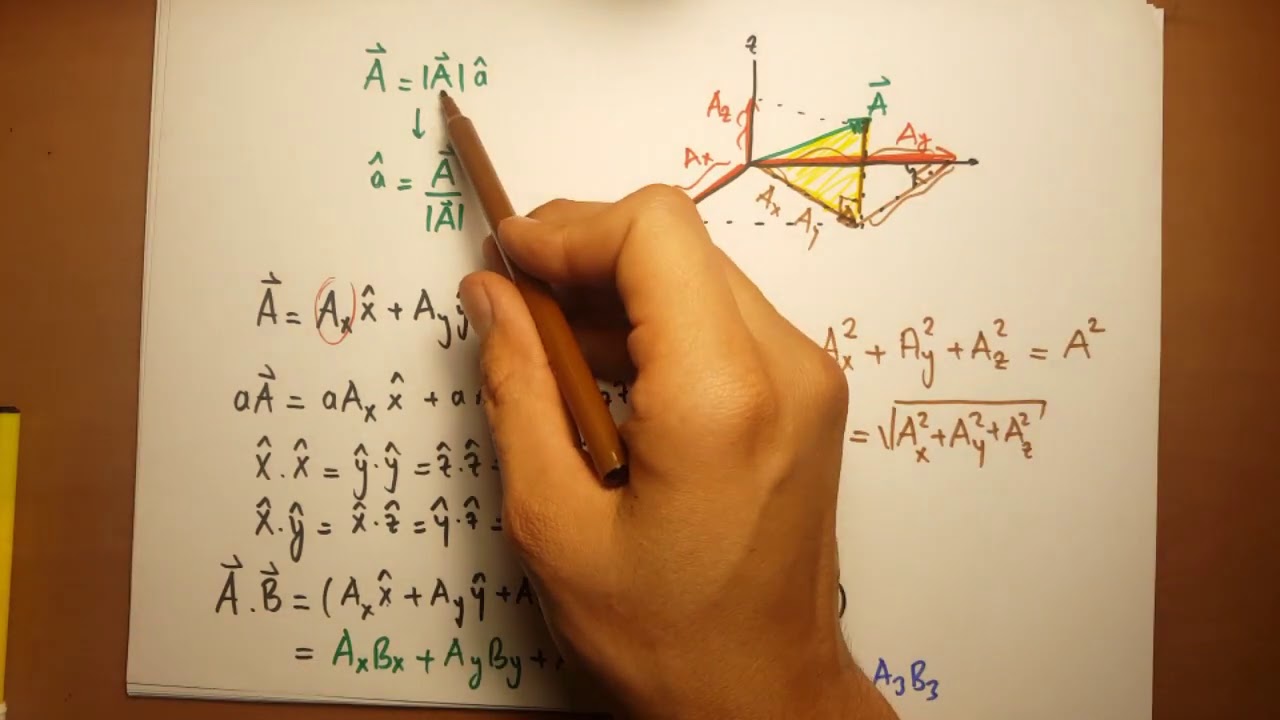 A⃗ = |A⃗| â
↓
â = A⃗ / |A⃗|
z
A⃗
Az
Ay
Ax
Ax Ay
A⃗ = Aₓ x̂ + A_y ŷ
Aₓ² + A_y² + A_z² = A²
aA⃗ = aAₓ x̂ + a
= √(Aₓ² + A_y² + A_z²)
x̂ · x̂ = ŷ · ŷ = ẑ · ẑ =
x̂ · ŷ = x̂ · ẑ = ŷ · ẑ =
A⃗ · B⃗ = (Aₓ x̂ + A_y ŷ + A )
= AₓBₓ + A_yB_y +
A₃B₃